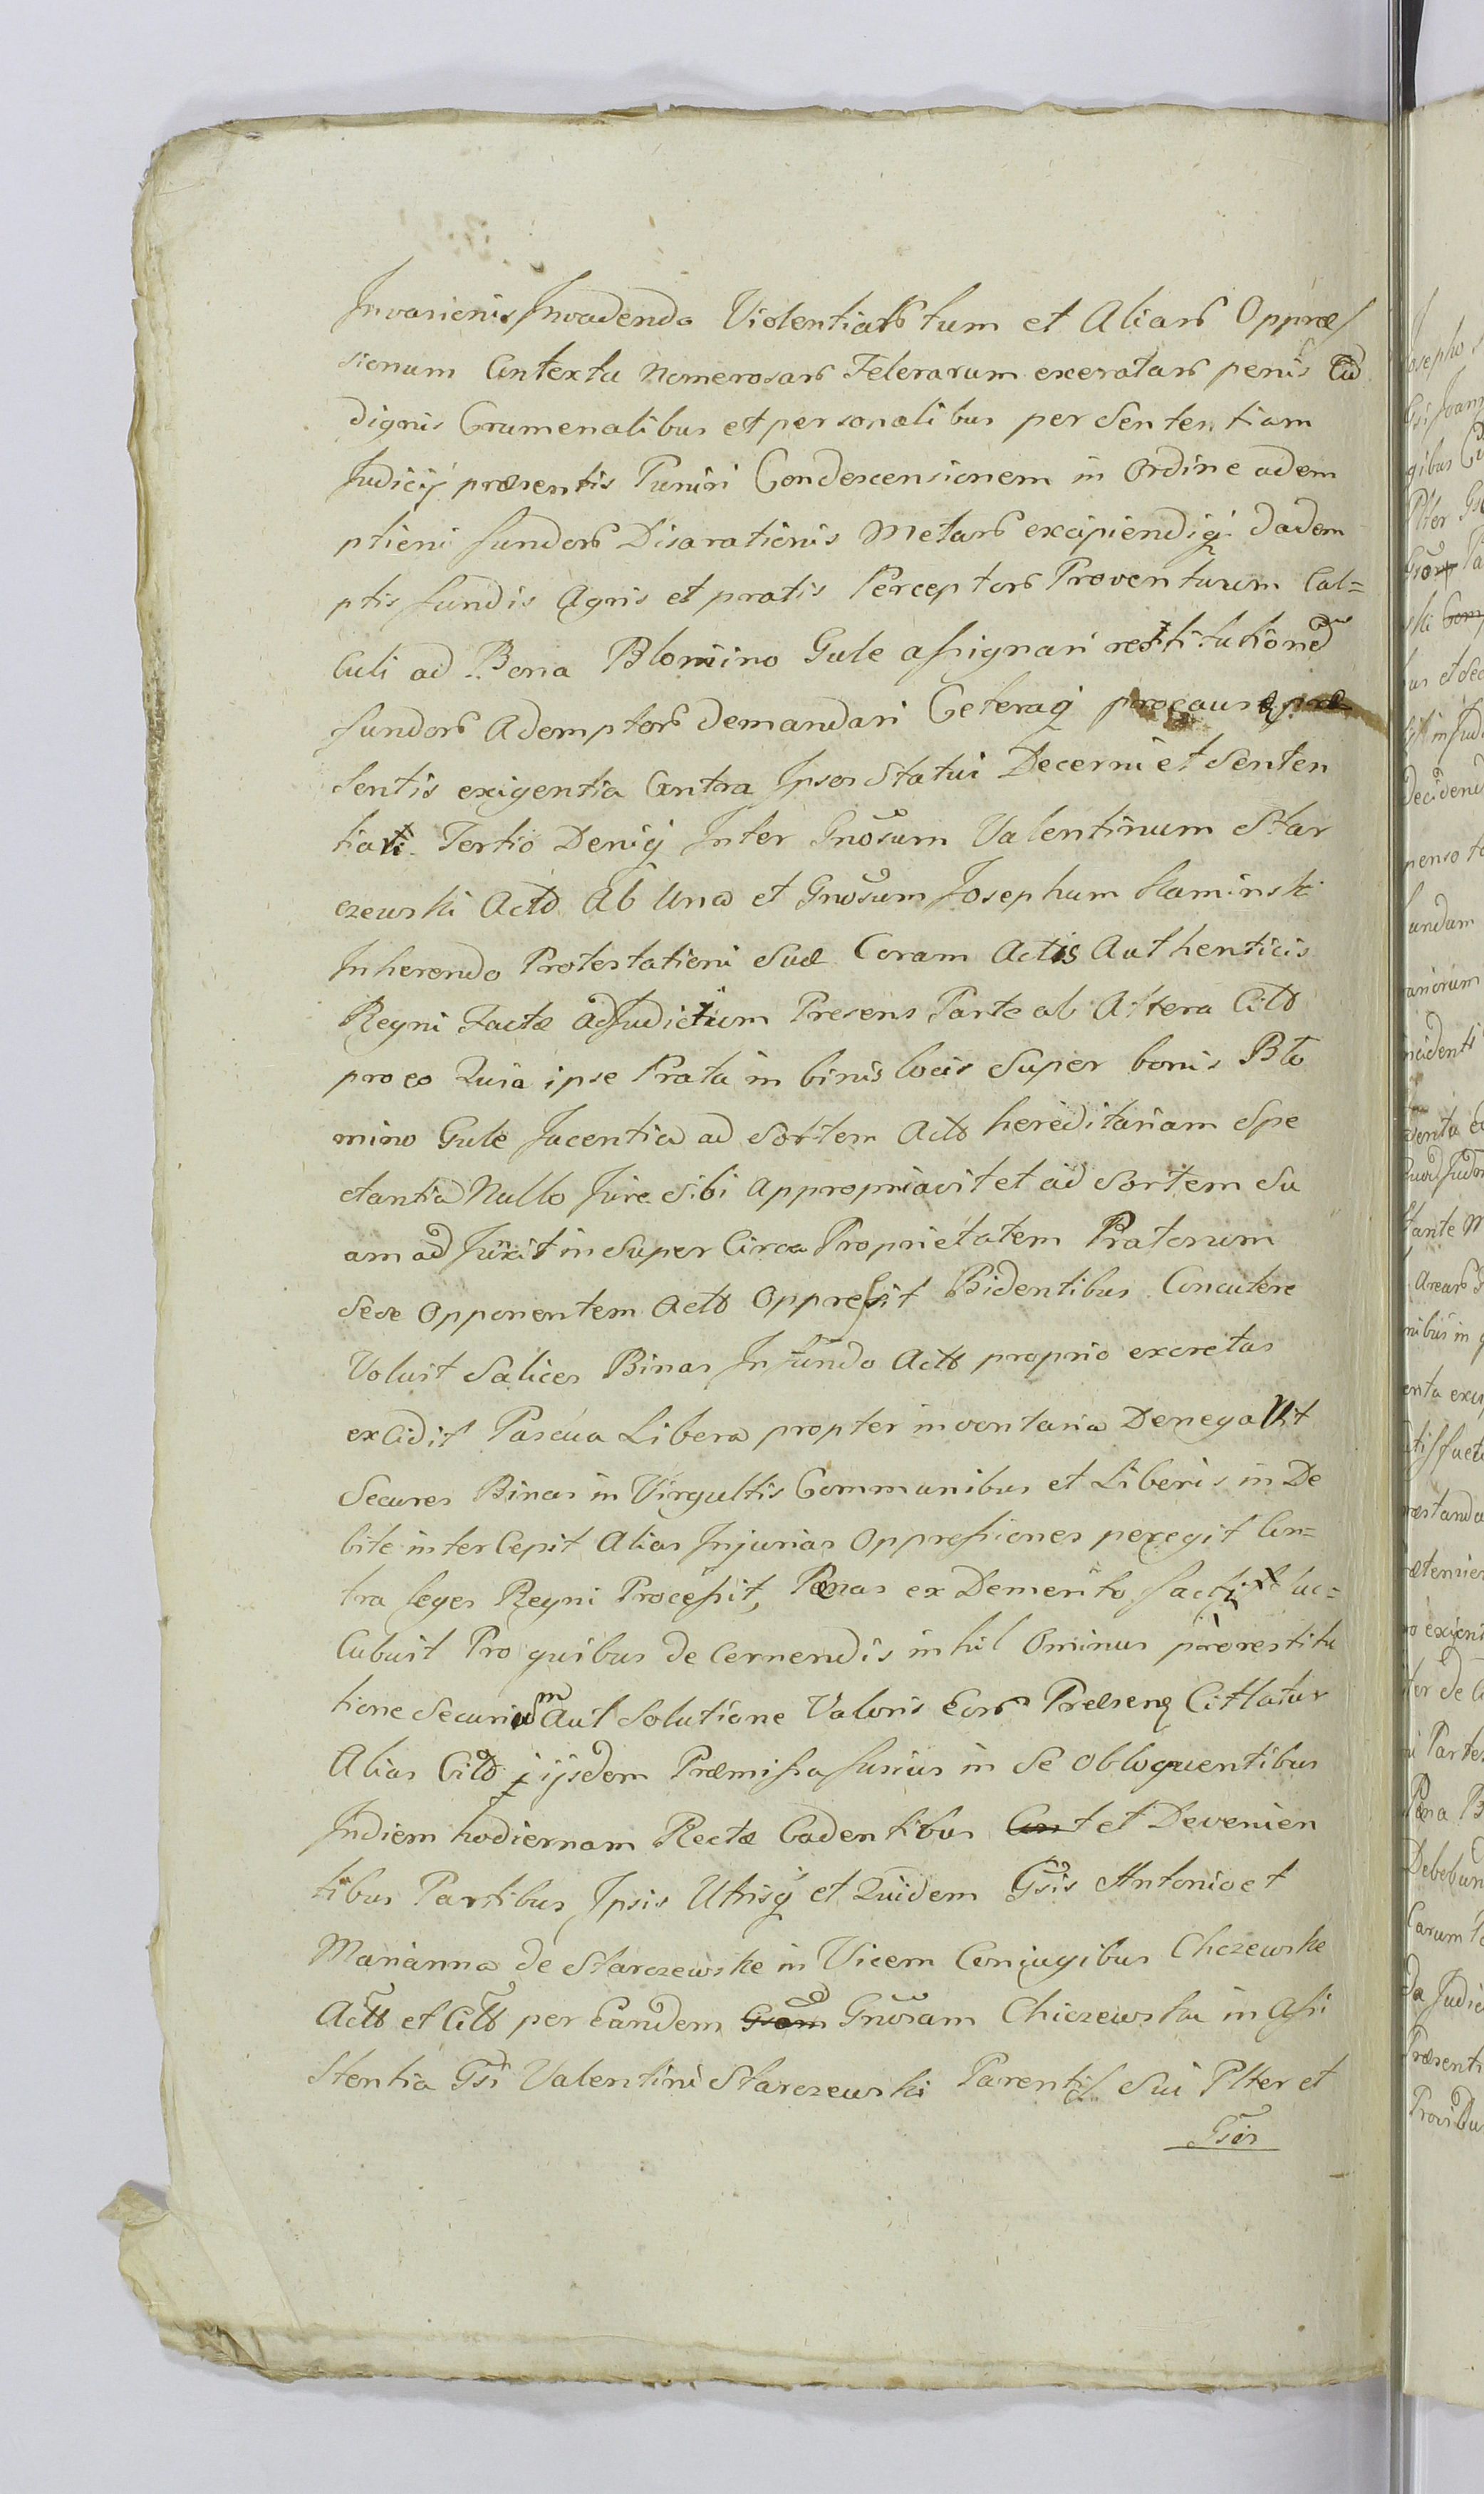 Invasionis Invadendo Violentiarb tum et Aliarb Oppræs
sionum Contextu Nomerosarb Felerarum exeratarb penis Cu
dignis Crumenalibus et personalibus per Sententiam
Judicij præsentis Puniri Condescensionem in Ordine adem
ptioni fundorb Disarationis Metarb excipiendiq dadem
ptis fundis Agris et pratis Perceptorb Proventuum Cal=
culi ad Bona Blomino Gule assignari restitutioned
fundorb Ademptorb demandari Ceteraq pro causæ præ
sentis exigentia Contra Ipsos Statui Decerni et Senten
tiari. Tertio Deniq Inter Gnosum Valentinum Star
czewski Actb Ab Una et Gnosum Josephum Kaminski
Inherendo Protestationi Suæ Coram Actis Authenticis
Regni Factæ ad Judicium Presens Parte ab Altera Citb
pro eo Quia ipse Prata in binis locis Super bonis Blo
mino Gule Jacentia ad Sortem Actb hereditariam Spe
ctantia Nullo Jure Sibi Appropriavit et ad Sortem Su
am adJunxit in Super Circa Proprietatem Pratorum
Sese Opponentem Actb Oppressit Bidentibus Concutere
Voluit Salices Binas In fundo Actb proprio excretas
excidit Pascua Libera propter inventaria Denegavit
Secures Binas in Virgultis Communibus et Liberis in De
bite intercepit Alias Injurias Oppressiones peregit Con=
tra leges Regni Processit, Pænas ex Demerito facti Suc=
Cubuit Pro quibus de Cernendis inhil Ominus pro restitu
tione Securium Aut Solutione Valoris Eorb Præsenq Cittatur
Alias Citb ijsdem Præmissa fusius in Se Obloquentibus
Indiem hodiernam Rectæ Cadentibus Con t et Devenien
tibus Partibus Ipsis Utrisq et Quidem Gsis Antonio et
Marianna de Starczewskie in Vicem Conjugibus Chczewskie
Actb et Citb per Eandem Gsam Gnosam Chiczewska in Assi
stentia Gsi Valentini Starczewski Parentis Sui Plter et
Gsos